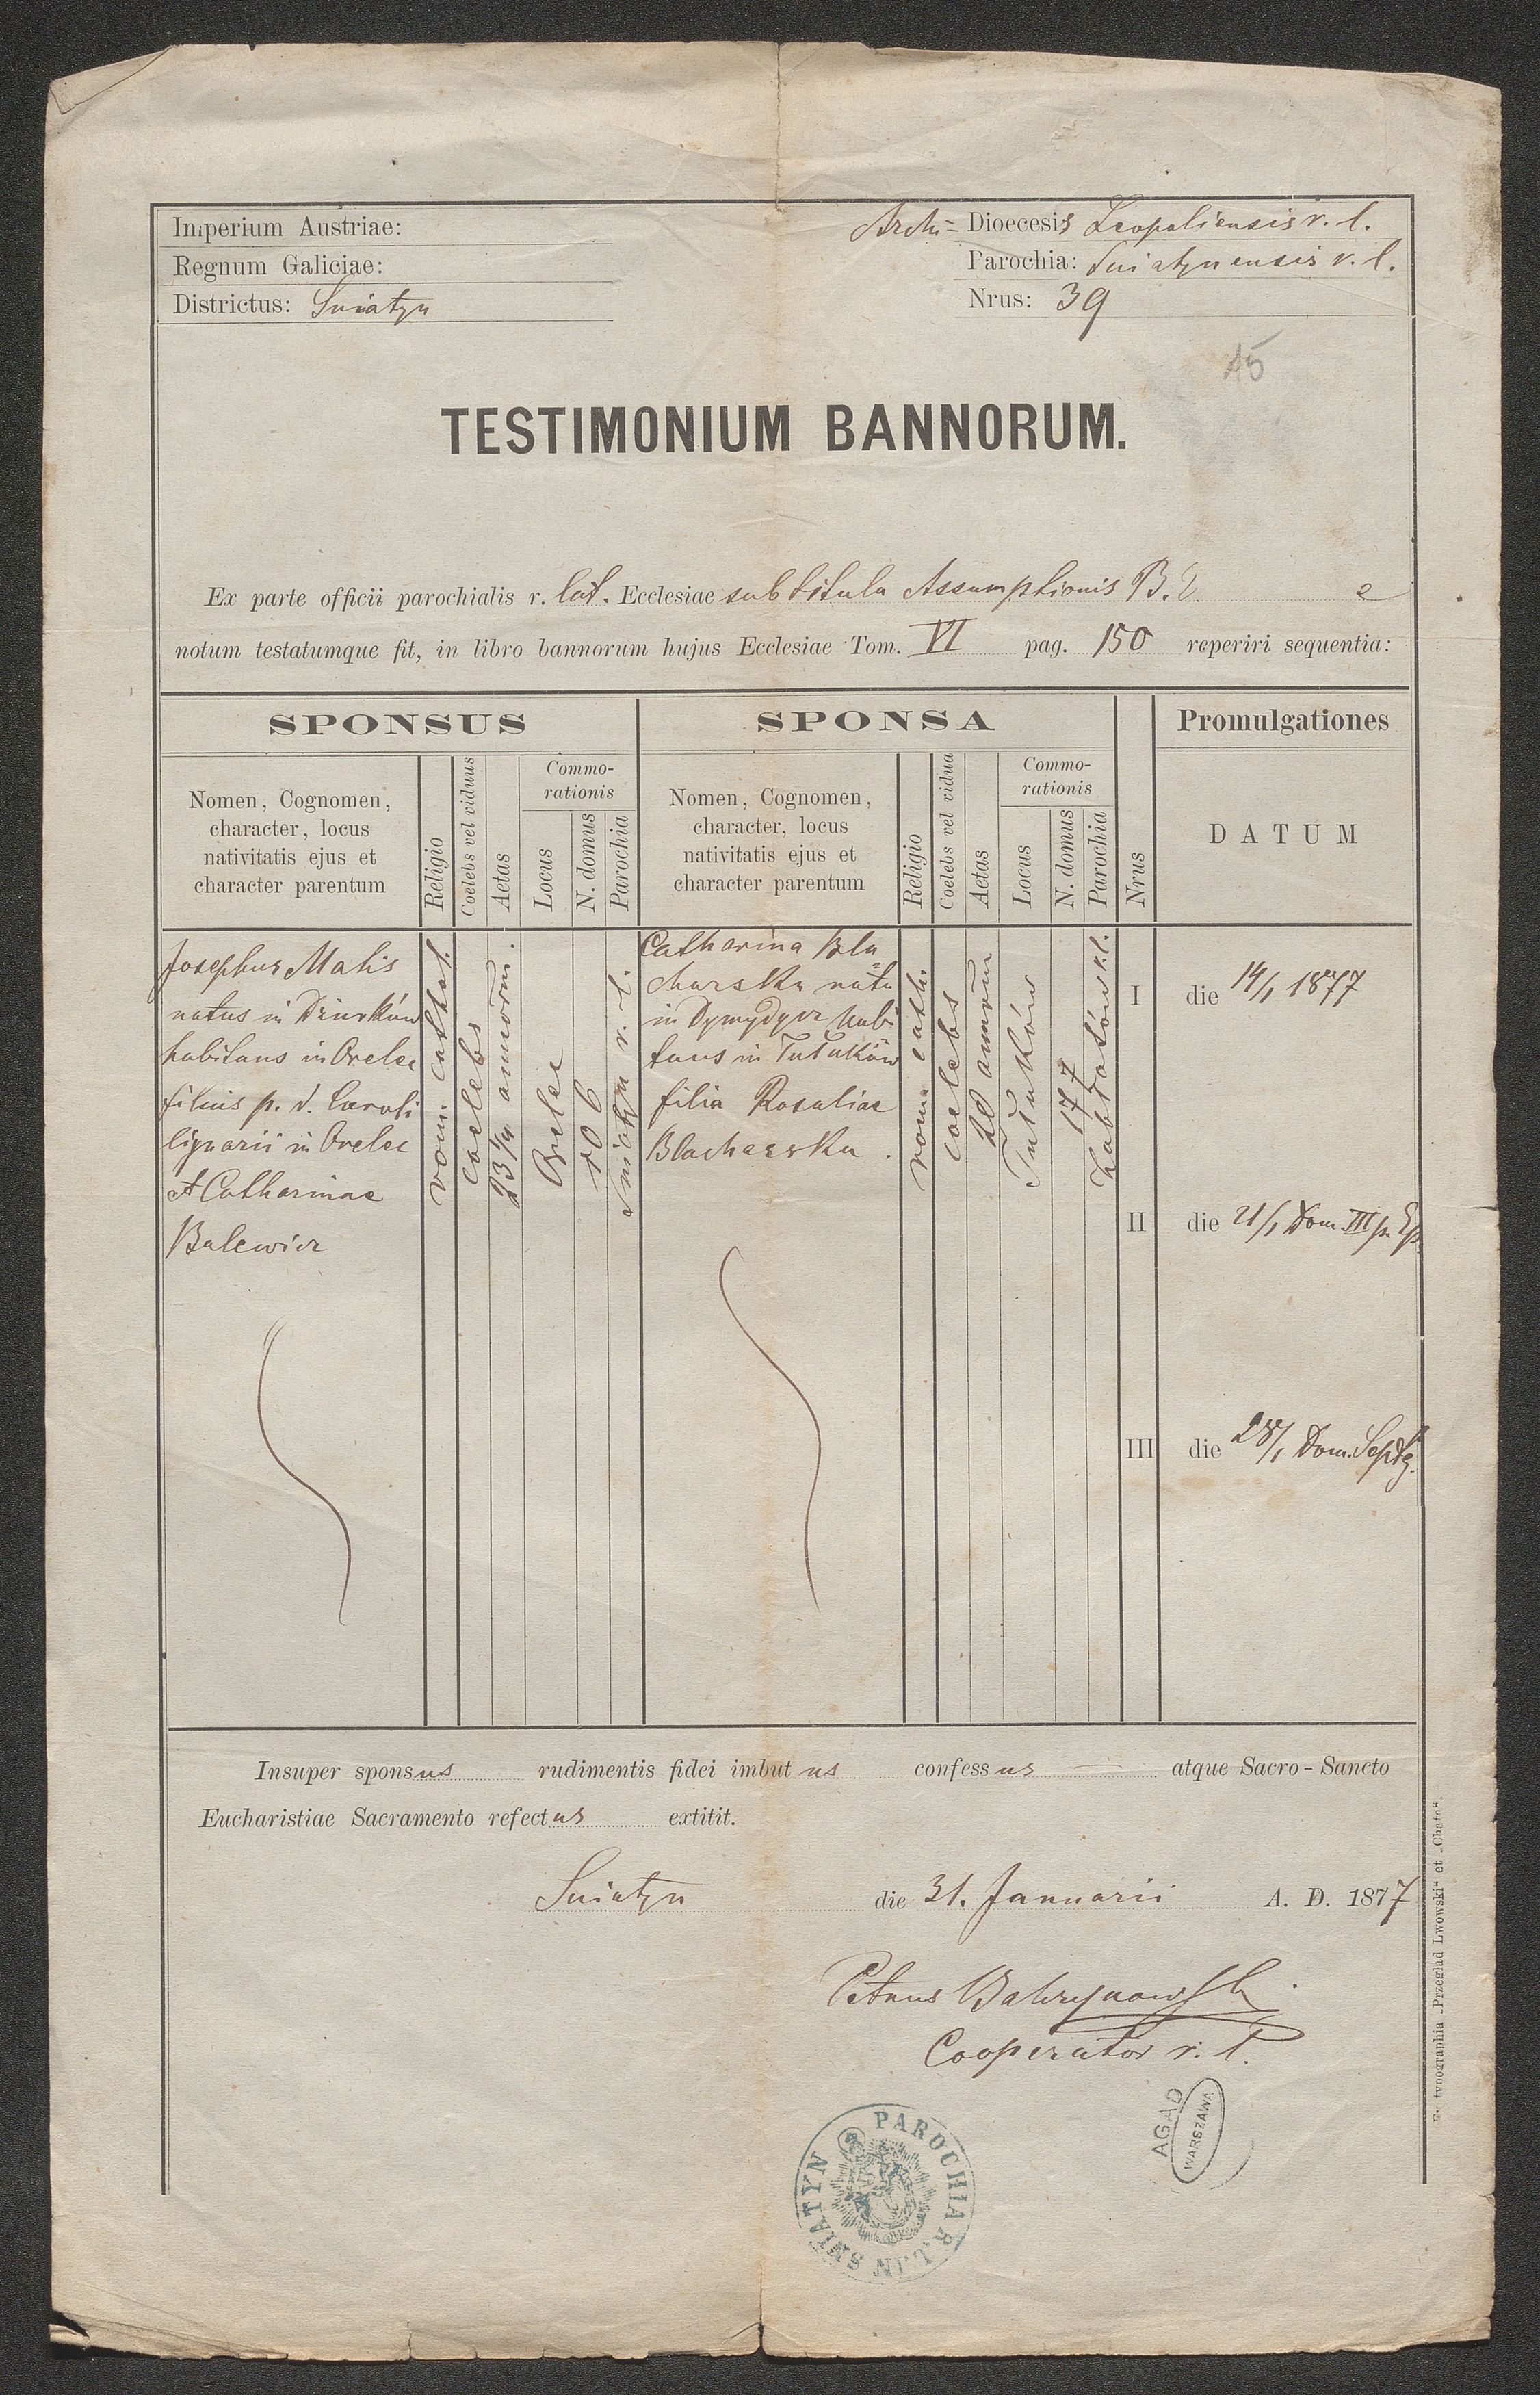 Imperium Austriae:
Regnum Galiciae:
Districtus: Sniatyn
Archi- Dioecesis Leopoliensis r. l.
Parochia: Sniatynensis r. l.
Nrus: 39
15
TESTIMONIUM BANNORUM.
Ex parte officii parochialis r. lat. Ecclesiae sub titulo Assumptionis B. V.
notum testatumque fit, in libro bannorum hujus Ecclesiae Tom. VI pag. 150 reperiri sequentia:
SPONSUS
Nomen, Cognomen,
character, locus
nativitatis ejus et
character parentum
Religio
Coelebs vel viduus
Aetas
Commo-
rationis
Locus
N. domus
Parochia
SPONSA
Nomen, Cognomen,
character, locus
nativitatis ejus et
character parentum
Religio
Coelebs vel vidua
Aetas
Commo-
rationis
Locus
N. domus
Parochia
Nrus
Promulgationes
DATUM
Josephus Malis
natus in Dzurków
habitans in Orelec
filius p. d. Caroli
lignarii in Orelec
et Catharinae
Balewicz
rom. cathol.
coelebs
23 1/4 annorum.
Orelec
106
Sniatyn r. l.
Catharina Bla
charska nata
in Dymydycz habi
tans in Tułuków
filia Rosaliae
Blacharska.
rom. cath.
coelebs
20 annorum
Tułuków
177
Zabłotów r. l.
I die 14/1 1877
II die 21/1 Dom. III p. Ep.
III die 28/1 Dom. Septg.
Insuper sponsus rudimentis fidei imbutus confessus atque Sacro-Sancto
Eucharistiae Sacramento refectus extitit.
Sniatyn die 31. Januarii A. D. 1877
Petrus
Cooperator r. l.
PAROCHIA R.L. IN SNIATYN
AGAD
WARSZAWA
Ex typographia „Przegląd Lwowski“ et „Chata“.